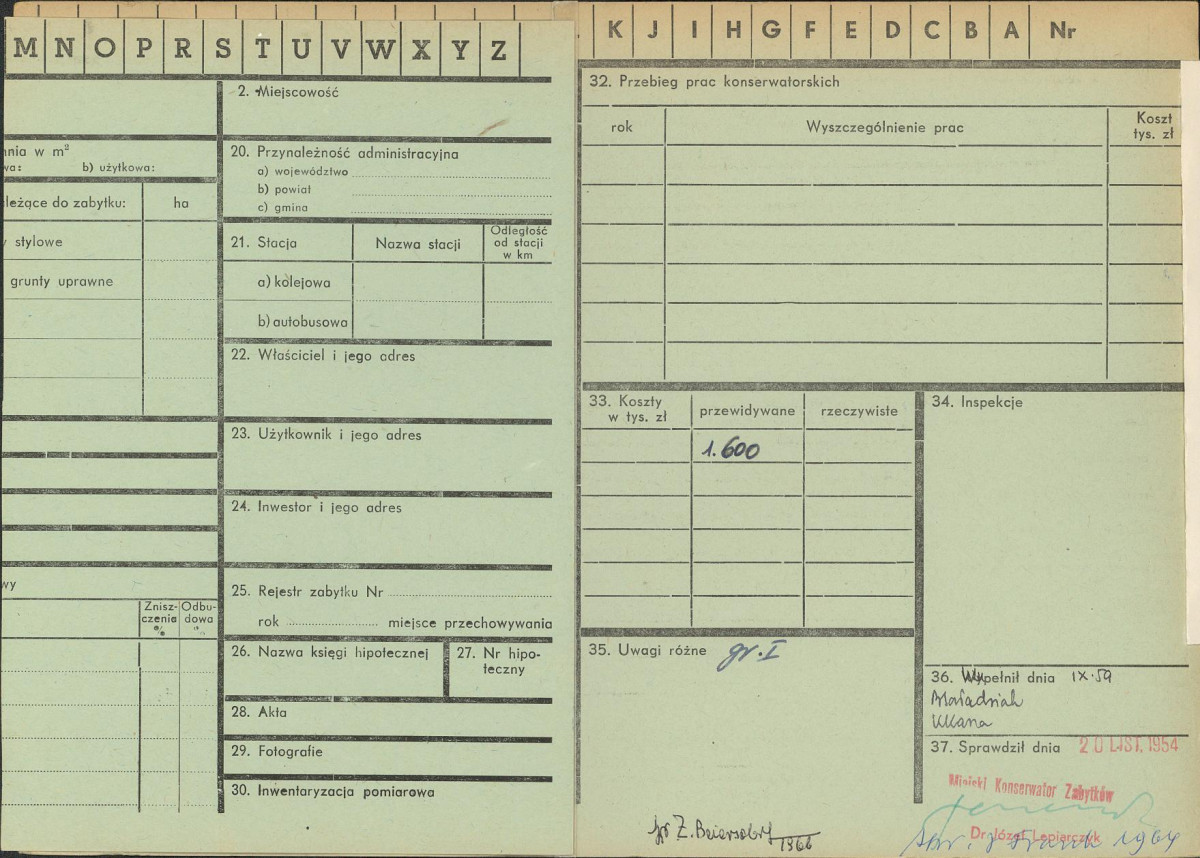 M N O P R S T U V W X Y Z
nia w m²
wa: b) użytkowa:
leżące do zabytku: ha
stylowe
grunty uprawne
wy
Znisz- Odbu-
czenia dowa
% %
2. Miejscowość
20. Przynależność administracyjna
a) województwo
b) powiat
c) gmina
21. Stacja Nazwa stacji Odległość
od stacji
w km
a) kolejowa
b) autobusowa
22. Właściciel i jego adres
23. Użytkownik i jego adres
24. Inwestor i jego adres
25. Rejestr zabytku Nr
rok miejsce przechowywania
26. Nazwa księgi hipotecznej 27. Nr hipo-
teczny
28. Akta
29. Fotografie
30. Inwentaryzacja pomiarowa
K J I H G F E D C B A Nr
32. Przebieg prac konserwatorskich
rok Wyszczególnienie prac Koszt
tys. zł
33. Koszty
w tys. zł przewidywane rzeczywiste
1.600
34. Inspekcje
35. Uwagi różne gr. I
36. Wypełnił dnia IX.59
37. Sprawdził dnia 20 LIST. 1954
Miejski Konserwator Zabytków
Dr Józef Lepiarczyk
1964
Z. Beiersdorf
1966